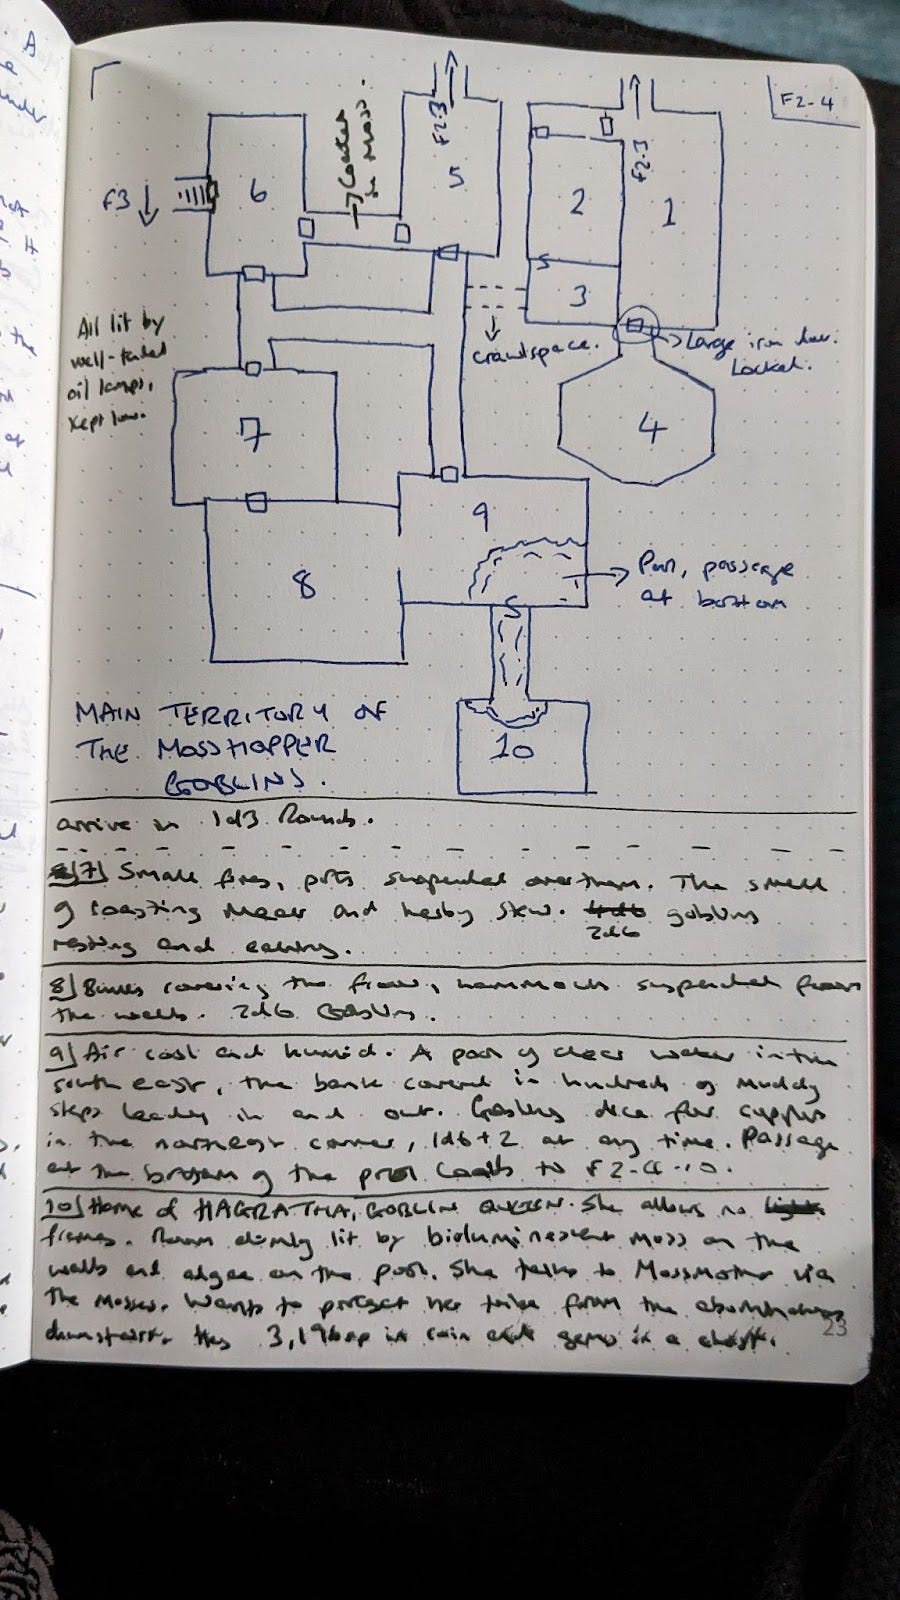 F2-4
F2.3
F2.3
Coated
in Moss.
6
5
2
1
F3
S
3
crawlspace.
Large iron door.
Locked.
All lit by
well-tended
oil lamps,
Kept low.
7
4
9
8
Pool, passage
at bottom
S
10
MAIN TERRITORY OF
THE MOSSHOPPER
GOBLINS.
arrive in 1d3 Rounds.
7) Small fires, pots suspended over them. The smell
of roasting meat and herby stew. 4d6 goblins
2d6
resting and eating.
8) covering the floor, hammocks suspended from
the walls. 2d6 Goblins.
9) Air cool and humid. A pool of clear water in the
south east, the bank covered in hundreds of muddy
steps leading in and out. Goblins dice for
in the northeast corner, 1d6+2 at any time. Passage
at the bottom of the pool leads to F2-4-10.
10) Home of HAGRATHA, GOBLIN QUEEN. She allows no light
flames. Room dimly lit by bioluminescent moss on the
walls and algae on the pool. She talks to MossMother via
the mosses. Wants to protect her tribe from the abominations
downstairs. Has 3,196gp in coin and gems in a chest.
23